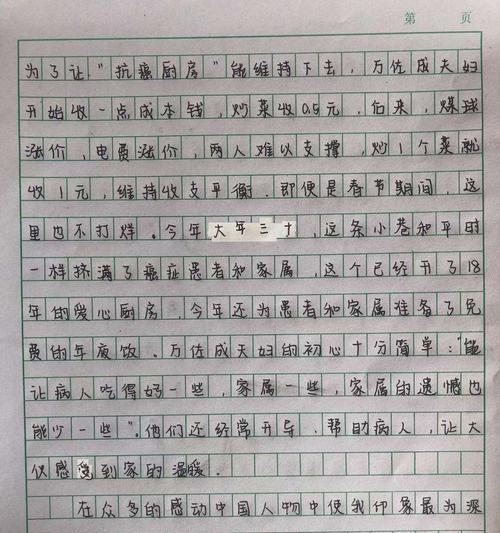 第 页
为了让"抗癌厨房"能维持下去,万佐成夫妇
开始收一点成本钱,炒菜收0.5元,后来,煤球
涨价,电费涨价,两人难以支撑,炒1个菜就
收1元,维持收支平衡。即便是春节期间,这
里也不打烊。今年大年三十,这条小巷和平时
一样挤满了癌症患者和家属,这个已经开了18
年的爱心厨房,今年还为患者和家属准备了免
费的年夜饭。万佐成夫妇的初心十分简单:"能
让病人吃得好一些,家属一些,家属的遗憾也
能少一些"。他们还经常开导、帮助病人,让大
伙感受到家的温暖。
在众多的感动中国人物中使我印象最为深